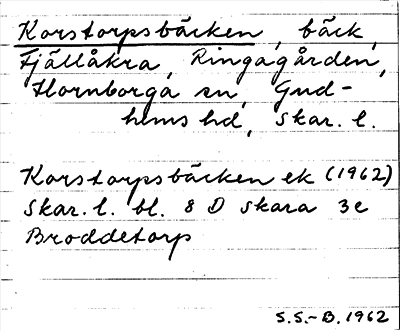 Korstorpsbäcken, bäck,
Fjällåkra, Ringagården,
Hornborga sn, Gud-
hems hd, Skar. l.
Korstorpsbäcken ek (1962)
Skar. l. bl. 8 D Skara 3e
Broddetorp
S.S.-B. 1962